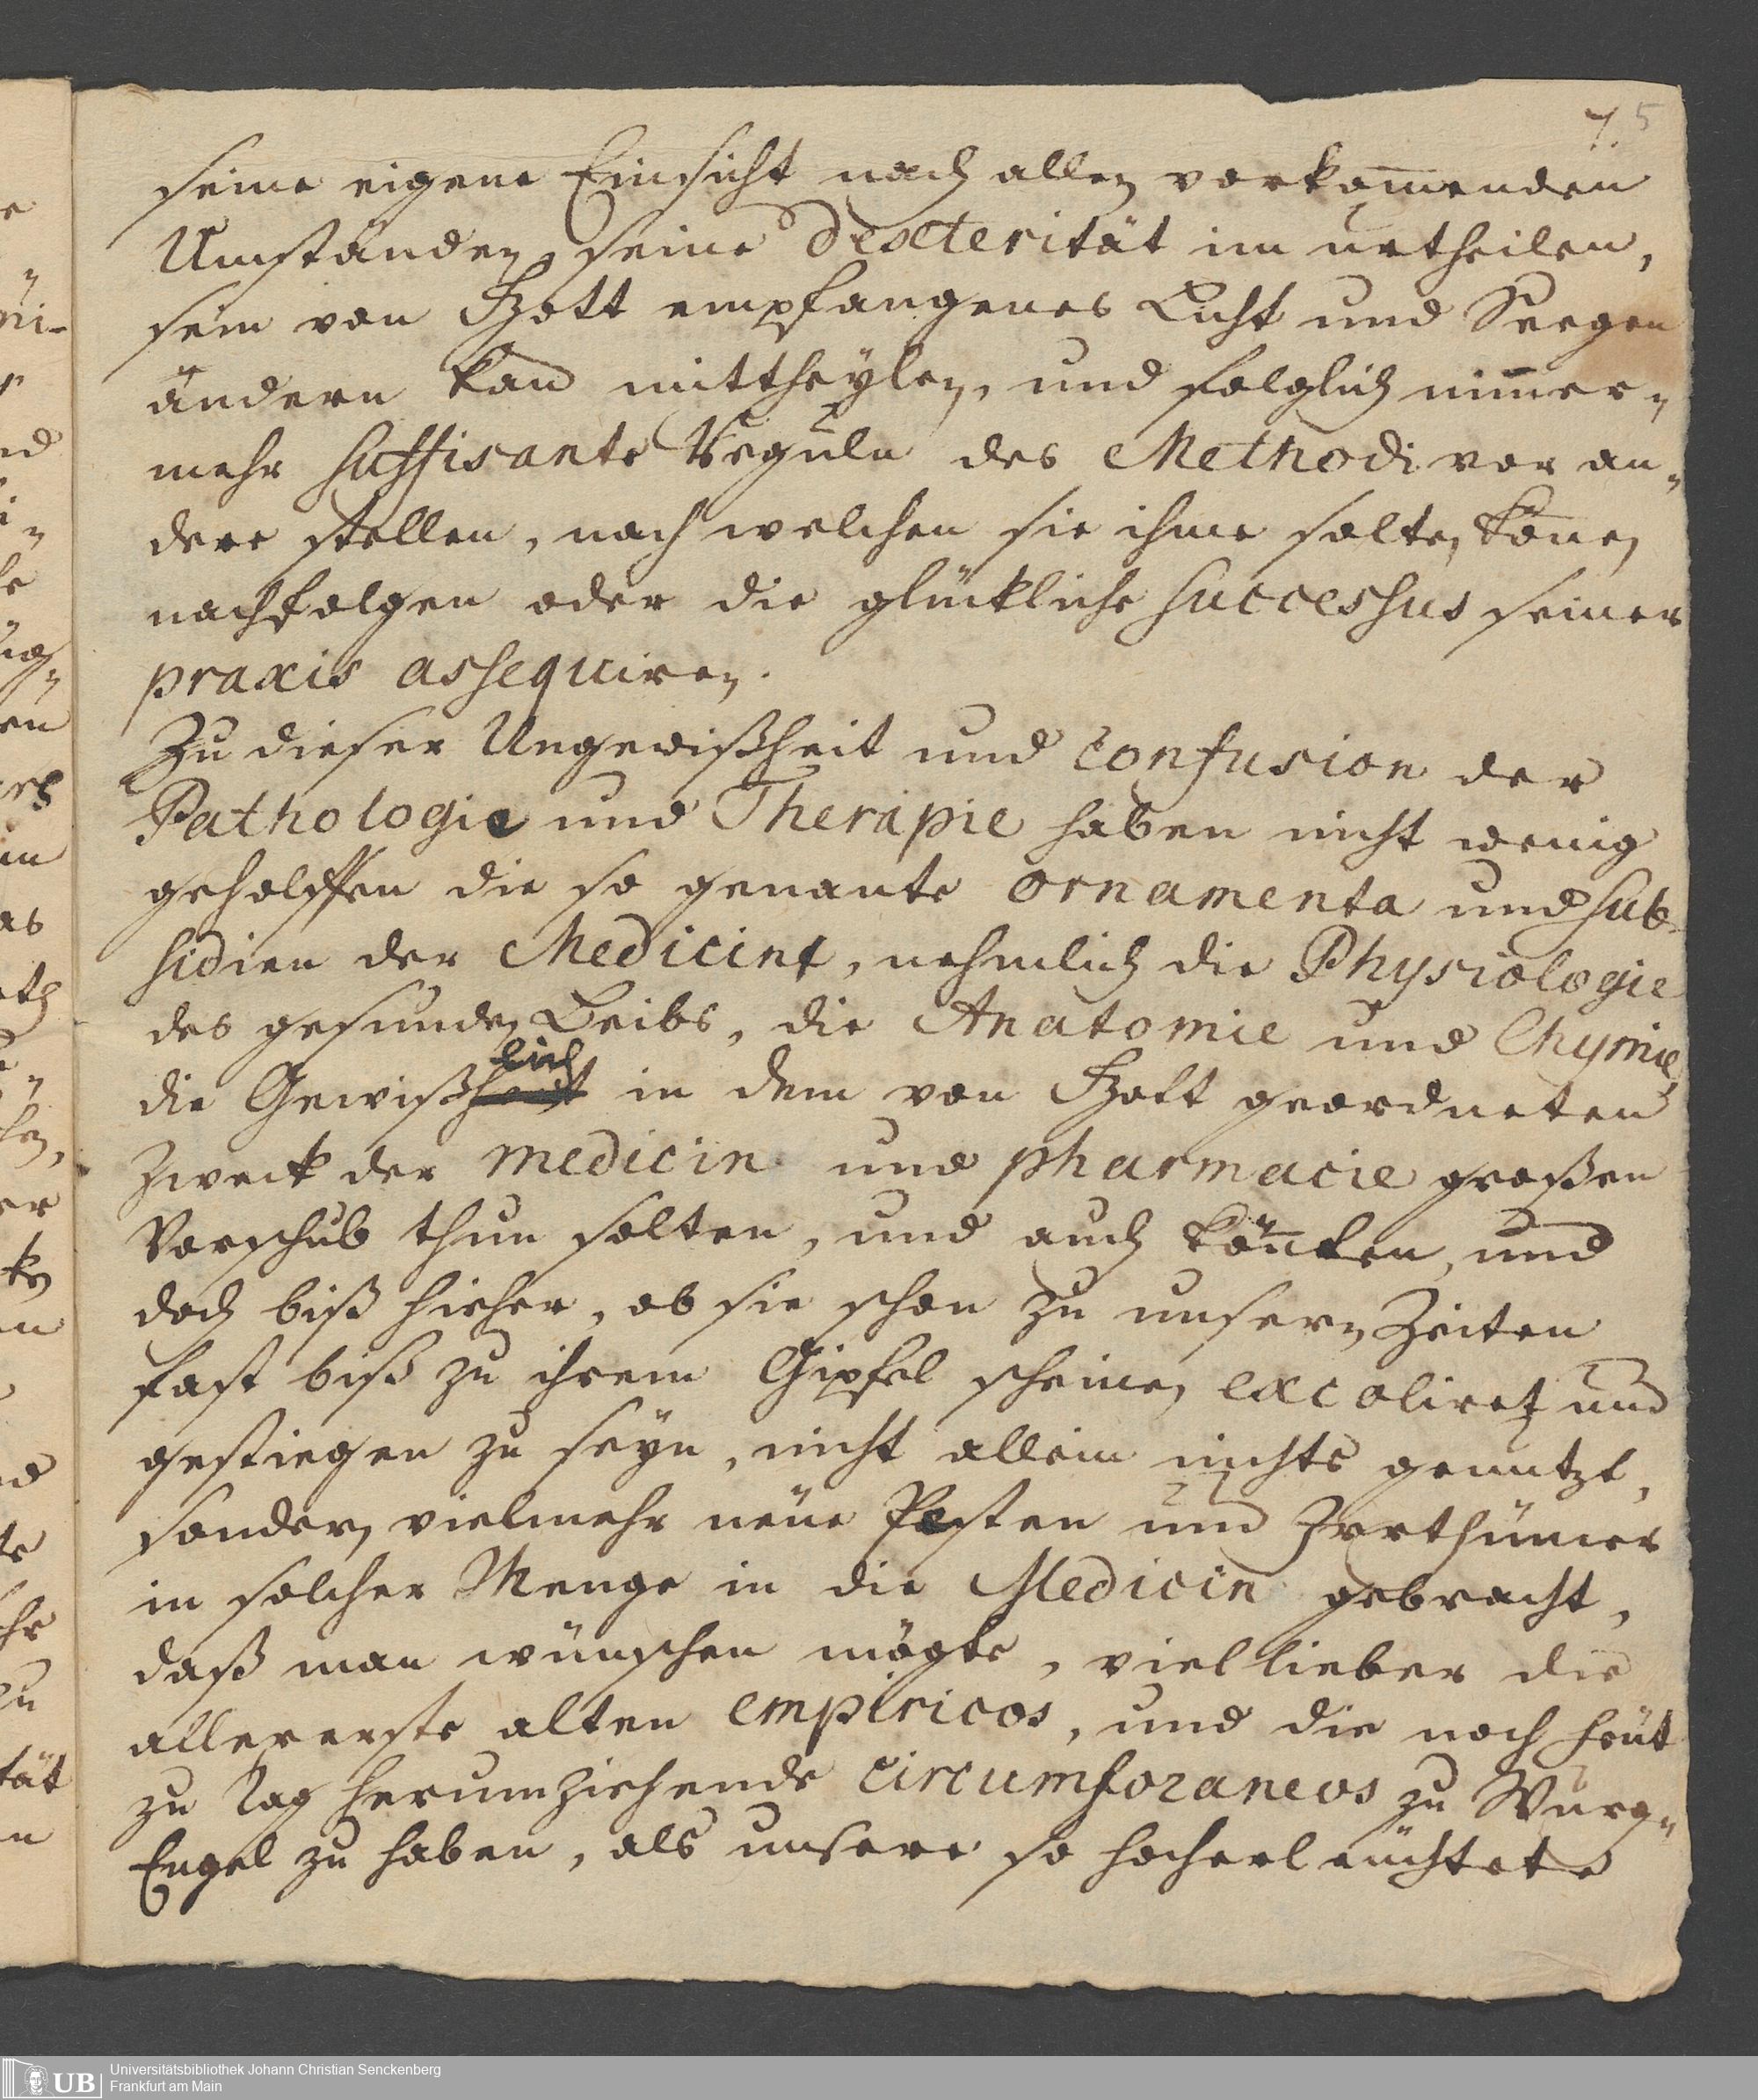 7. 5
seine eigene Einsicht nach allen vorkom̄enden
Umständen, seine dexterität im urtheilen,
sein von Gott empfangenes Licht und Seegen
andern kan mittheylen, und folglich nim̄er„
mehr suffisante Reguln des Methodi vor an„
dere stellen, nach welchen sie ihme solten kön̄en
nachfolgen oder die glückliche successus seiner
praxis assequiren.
Zu dieser Ungewißheit und confusion der
Pathologie und Therapie haben nicht wenig
geholffen die so genante ornamenta und sub„
sidien der Medicine, nehmlich die Physiologie
des gesunden Leibs, die Anatomie und Chymie,
lich
die Gewißheit in dem von Gott geordneten
Zweck der medicin und pharmacie großen
Vorschub thun solten, und auch kön̄ten, und
doch biß hieher, ob sie schon zu unsern Zeiten
fast biß zu ihrem Gipfel scheinen excoliret und
gestiegen zu seyn, nicht allein nichts genutzt,
sondern vielmehr neüe Pesten und Irrthümer
in solcher Menge in die Medicin gebracht,
daß man wünschen mögte, viel lieber die
allererste alten empiricos, und die noch heüt
zu Tag herumziehende circumforaneos zu Würg„
Engel zu haben, als unsere so hocherleüchtete
UB
Universitätsbibliothek Johann Christian Senckenberg
Frankfurt am Main